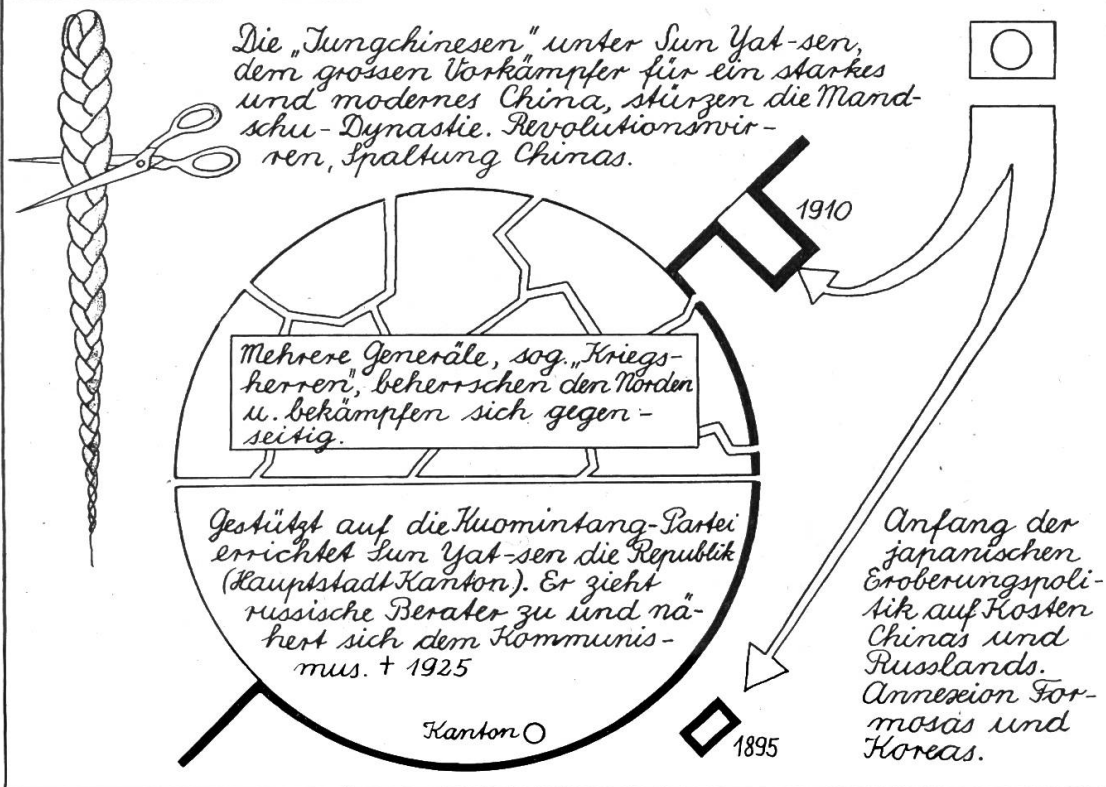 Die „Jungchinesen" unter Sun Yat-sen,
dem grossen Vorkämpfer für ein starkes
und modernes China, stürzen die Mand-
schu-Dynastie. Revolutionswir-
ren, Spaltung Chinas.
1910
Mehrere Generäle, sog. „Kriegs-
herren", beherrschen den Norden
u. bekämpfen sich gegen-
seitig.
Gestützt auf die Kuomintang-Partei
errichtet Sun Yat-sen die Republik
(Hauptstadt Kanton). Er zieht
russische Berater zu und nä-
hert sich dem Kommunis-
mus. † 1925
Kanton
1895
Anfang der
japanischen
Eroberungspoli-
tik auf Kosten
Chinas und
Russlands.
Annexion For-
mosas und
Koreas.